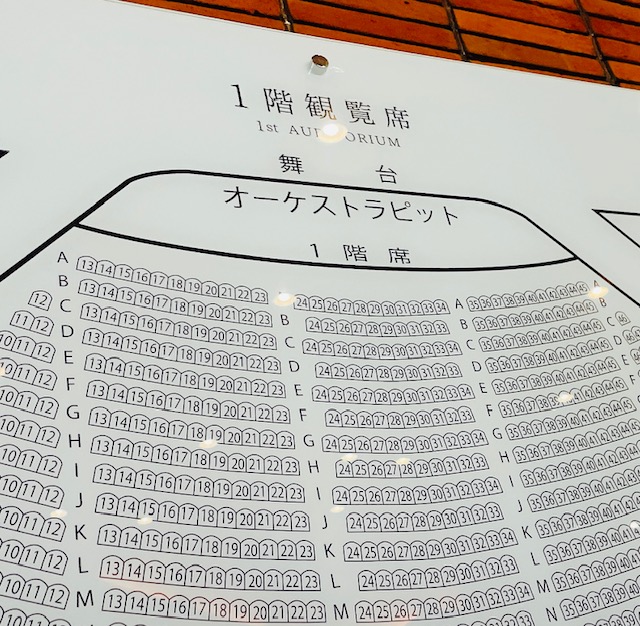 1階観覧席
1st AUDITORIUM
舞 台
オーケストラピット
1 階 席
A 13 14 15 16 17 18 19 20 21 22 23 24 25 26 27 28 29 30 31 32 33 34 A 35 36 37 38 39 40 41 42 43 44 45 A
B 13 14 15 16 17 18 19 20 21 22 23 B 24 25 26 27 28 29 30 31 32 33 B 35 36 37 38 39 40 41 42 43 44 45 B
12 C 13 14 15 16 17 18 19 20 21 22 23 C 24 25 26 27 28 29 30 31 32 33 34 C 35 36 37 38 39 40 41 42 43 44 45 C
11 12 D 13 14 15 16 17 18 19 20 21 22 23 D 24 25 26 27 28 29 30 31 32 33 D 35 36 37 38 39 40 41 42 43 44 45 D
10 11 12 E 13 14 15 16 17 18 19 20 21 22 23 E 24 25 26 27 28 29 30 31 32 33 34 E 35 36 37 38 39 40 41 42 43 44 45
10 11 12 F 13 14 15 16 17 18 19 20 21 22 23 F 24 25 26 27 28 29 30 31 32 33 F 35 36 37 38 39 40 41 42 43 44 45
10 11 12 G 13 14 15 16 17 18 19 20 21 22 23 G 24 25 26 27 28 29 30 31 32 33 34 G 35 36 37 38 39 40 41 42 43 44 45
10 11 12 H 13 14 15 16 17 18 19 20 21 22 23 H 24 25 26 27 28 29 30 31 32 33 H 35 36 37 38 39 40 41 42 43 44
10 11 12 I 13 14 15 16 17 18 19 20 21 22 23 I 24 25 26 27 28 29 30 31 32 33 34 I 35 36 37 38 39 40 41 42 43 44
10 11 12 J 13 14 15 16 17 18 19 20 21 22 23 J 24 25 26 27 28 29 30 31 32 33 J 35 36 37 38 39 40 41 42 43
10 11 12 K 13 14 15 16 17 18 19 20 21 22 23 K 24 25 26 27 28 29 30 31 32 33 34 K 35 36 37 38 39 40 41 42
10 11 12 L 13 14 15 16 17 18 19 20 21 22 23 L 24 25 26 27 28 29 30 31 32 33 L 35 36 37 38 39 40 41 42
10 11 12 M 13 14 15 16 17 18 19 20 21 22 23 M 24 25 26 27 28 29 30 31 32 33 34 M 35 36 37 38 39 40 41
N 35 36 37 38 39 40